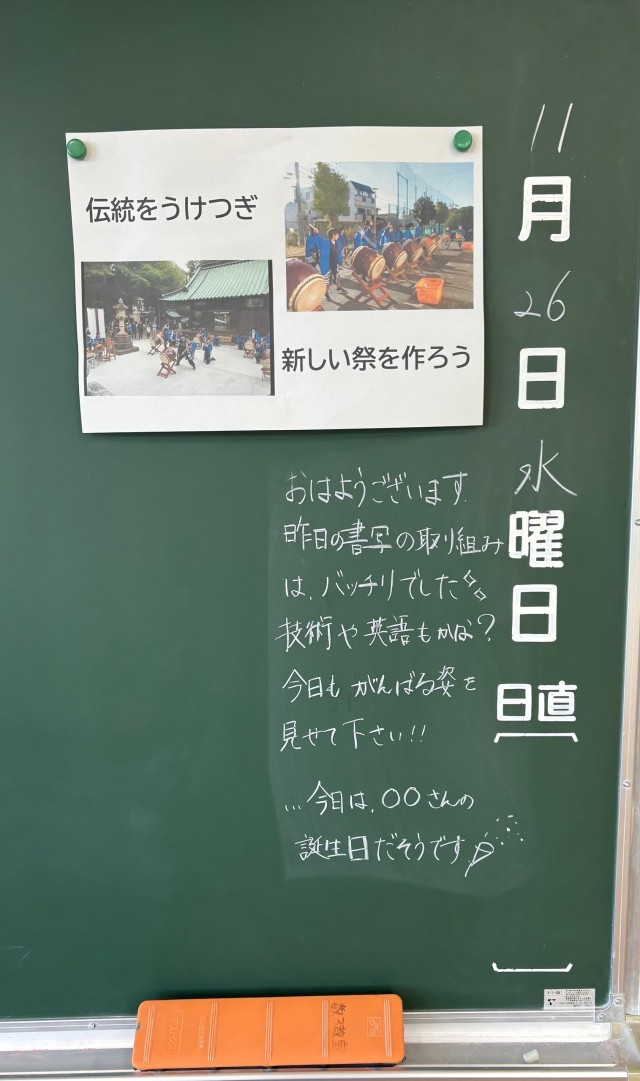 伝統をうけつぎ
新しい祭を作ろう
11月26日水曜日
日直
おはようございます.
昨日の書写の取り組み
は、バッチリでした
技術や英語もかな?
今日もがんばる姿を
見せて下さい!!
…今日は、〇〇さんの
誕生日だそうです